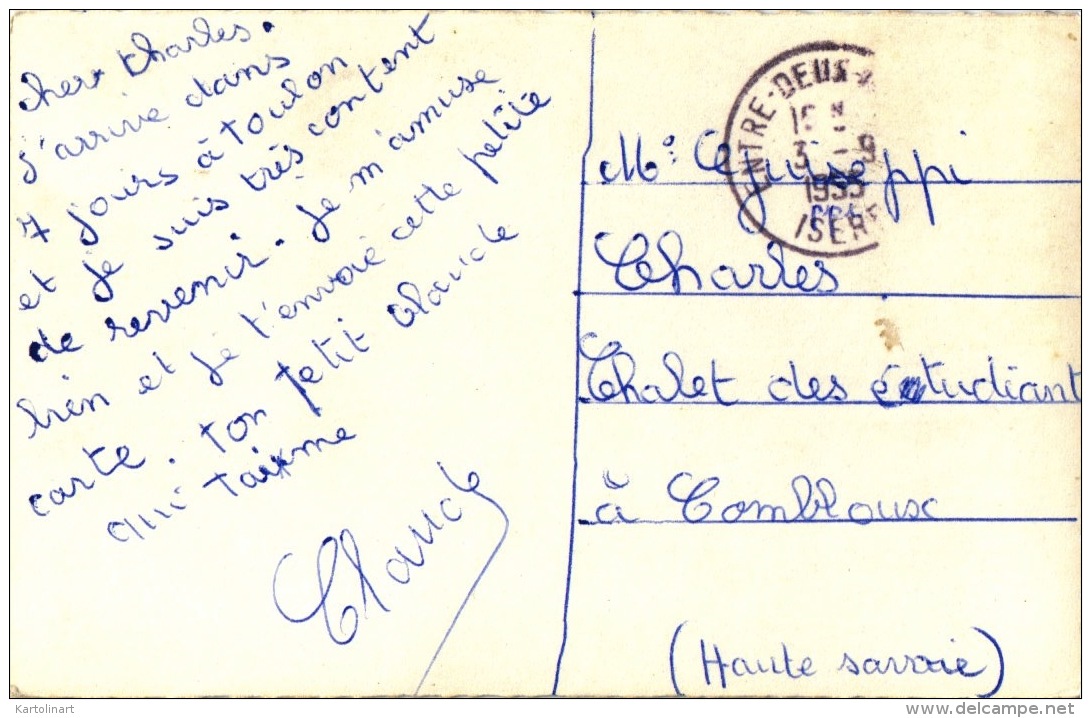 cher Charles.
j'arrive dans
7 jours à toulon
et je suis très content
de revenir. Je m'amuse
bien et je t'envoie cette petite
carte. ton petit Claude
qui taixme
Claude
ENTRE-DEUX-
3 - 9
1955
ISERE
Mr Giuseppi
Charles
Chalet des étudiant
à Combloux
(Haute savoie)
Kartolinart
www.delcampe.net